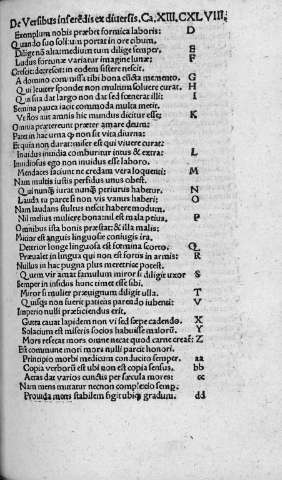 De Versibus inserēdis ex diuersis, Ca. XIII. CXLVIII.
Exemplum nobis præbet formica laboris: D
Quando suo solitum portat in ore cibum.
Dilige nō altamediumtum dilige semper, E
Ludus fortunæ variatur imagine lunæ: F
Crescit: decrescit: in eodem sistere nescit.
A domino commissa tibi bona dicta memento. G
Qui leuiter spondet non multum soluere curat. H
Qui sua dat largo non dat sed fœnerat illi: I
Semina pauca iacit commoda multa metit.
Vt flos aut amnis hic mundus dicitur esse: K
Omnia prætereunt præter amare deum:
Pars in hac urna non sit vita diurna:
Et quia non durat: miser est qui viuere curat:
Inuidus inuidia comburitur intus & extra: L
Inuidiosus ego non inuidus esse laboro.
Mendaces faciunt ne credam vera loquenti: M
Nam multis iustis perfidus unus obest.
Qui nunquā iurat nunquā periurus habetur. N
Lauda tu parce si non vis vanus haberi: O
Nam laudans stultus nescit habere modum.
Nil melius muliere bona: nil est mala peius, P
Omnibus ista bonis præstat: & illa malis:
Mitior est anguis linguosæ coniugis ira,
Deterior longe linguosa est fœmina scorto. Q
Præualet in lingua qui non est fortis in armis: R
Nullus in hac pugna plus meretrice potest.
Quem vir amat famulum miror si diligit uxor S
Semper in insidiis hunc timet esse sibi.
Miror si mulier præuignum diligit ulla. T
Quisquis non fuerit patiens parendo iubenti: V
Imperio nulli præficiendus erit,
Gutta cauat lapidem non vi sed sæpe cadendo. X
Solacium est miseris socios habuisse malorū. Y
Mors resecat mors omne necat quod carne creat: Z
Est commune mori mors nulli parcit honori.
Principio morbi medicum conducito semper. aa
Copia verborū est ubi non est copia sensus, bb
Aetas dat varios cunctis per sæcula mores: cc
Nam mens mutatur necnon complexio semp
Prouida mens stabilem figit ubiq; gradum. dd